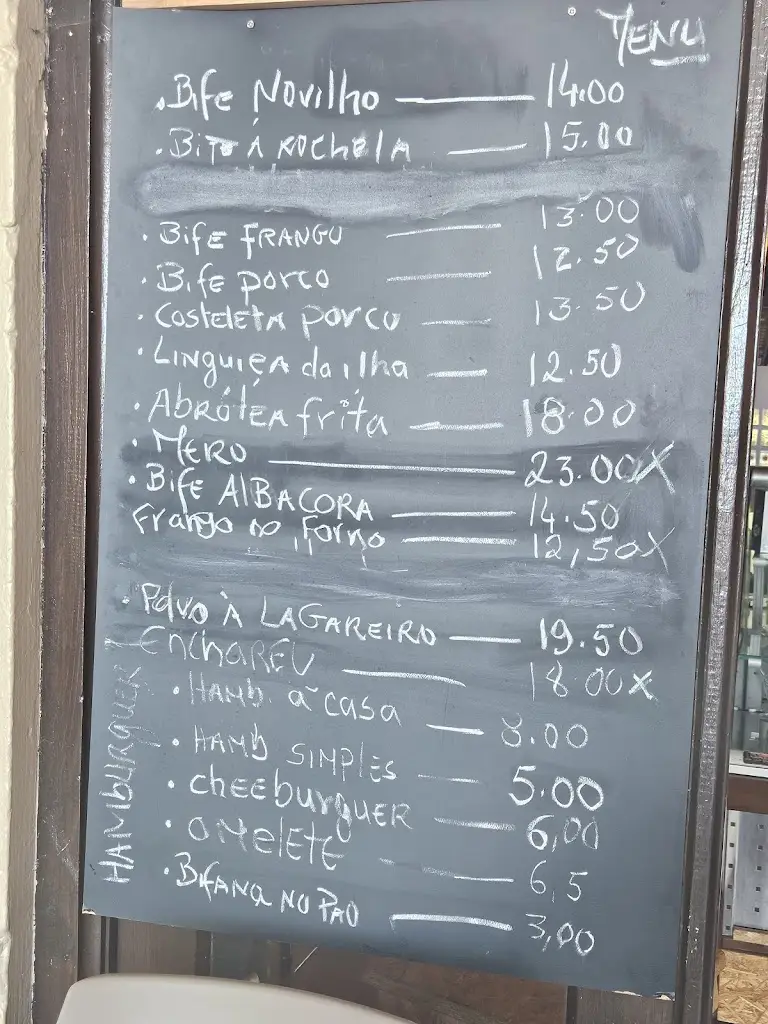 MENU
.Bife Novilho — 14.00
.Bife À ROCHELA — 15.00
.Bife FRANGO — 13.00
.Bife porco — 12.50
.Costeleta porco — 13.50
.Linguiça da ilha — 12.50
.Abrótea frita — 18.00
.MERO — 23.00X
.Bife AlBACORA — 14.50
Frango no Forno — 12,50X
.Polvo À LAGAREIRO — 19.50
EnchAREU — 18.00X
HAMBURGUER
.HAMB. à casa — 8.00
.HAMB SIMPLES — 5.00
.cheeburguer — 6,00
.omelete — 6,5
.Bifana no Pao — 3,00